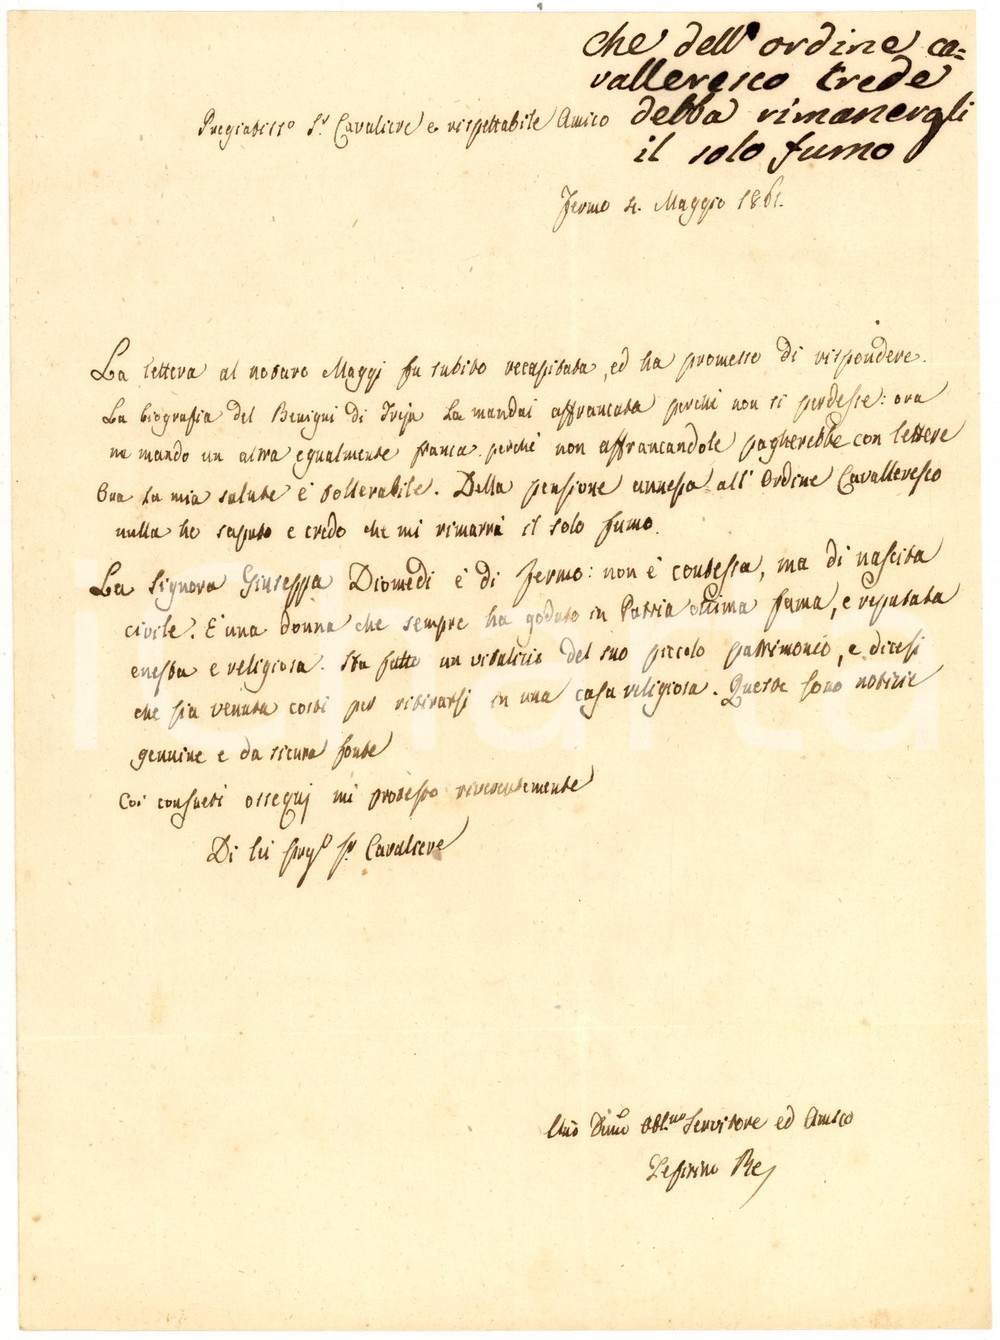 che dell'ordine ca=
valleresco crede
debba rimanergli
il solo fumo
Pregiabissº Sr Cavaliere e rispettabile Amico
Fermo 4. Maggio 1861.
La lettera al notaro Maggi fu subito recapitata, ed ha promesso di rispondere.
La biografia del Benigni di Treja la mandai affrancata perchè non si perdesse: ora
ne mando un altra egualmente franca perchè non affrancandole pagherebbe con lettere
Ora la mia salute è tollerabile. Della pensione annessa all'Ordine Cavalleresco
nulla ho saputo e credo che mi rimarrà il solo fumo.
La Signora Giuseppa Diomedi è di Fermo: non è contessa, ma di nascita
civile. È una donna che sempre ha goduto in Patria ottima fama, e reputata
onesta e religiosa. Ha fatto un vitalizio del suo piccolo patrimonio, e dicesi
che sia venuta costì per ritirarsi in una casa religiosa. Queste sono notizie
genuine e da sicura fonte
Coi consueti ossequj mi protesto riverentemente
Di lei Preg.º Sr Cavaliere
Umº Dmº Obl.mo Servitore ed Amico
Zefirino Re